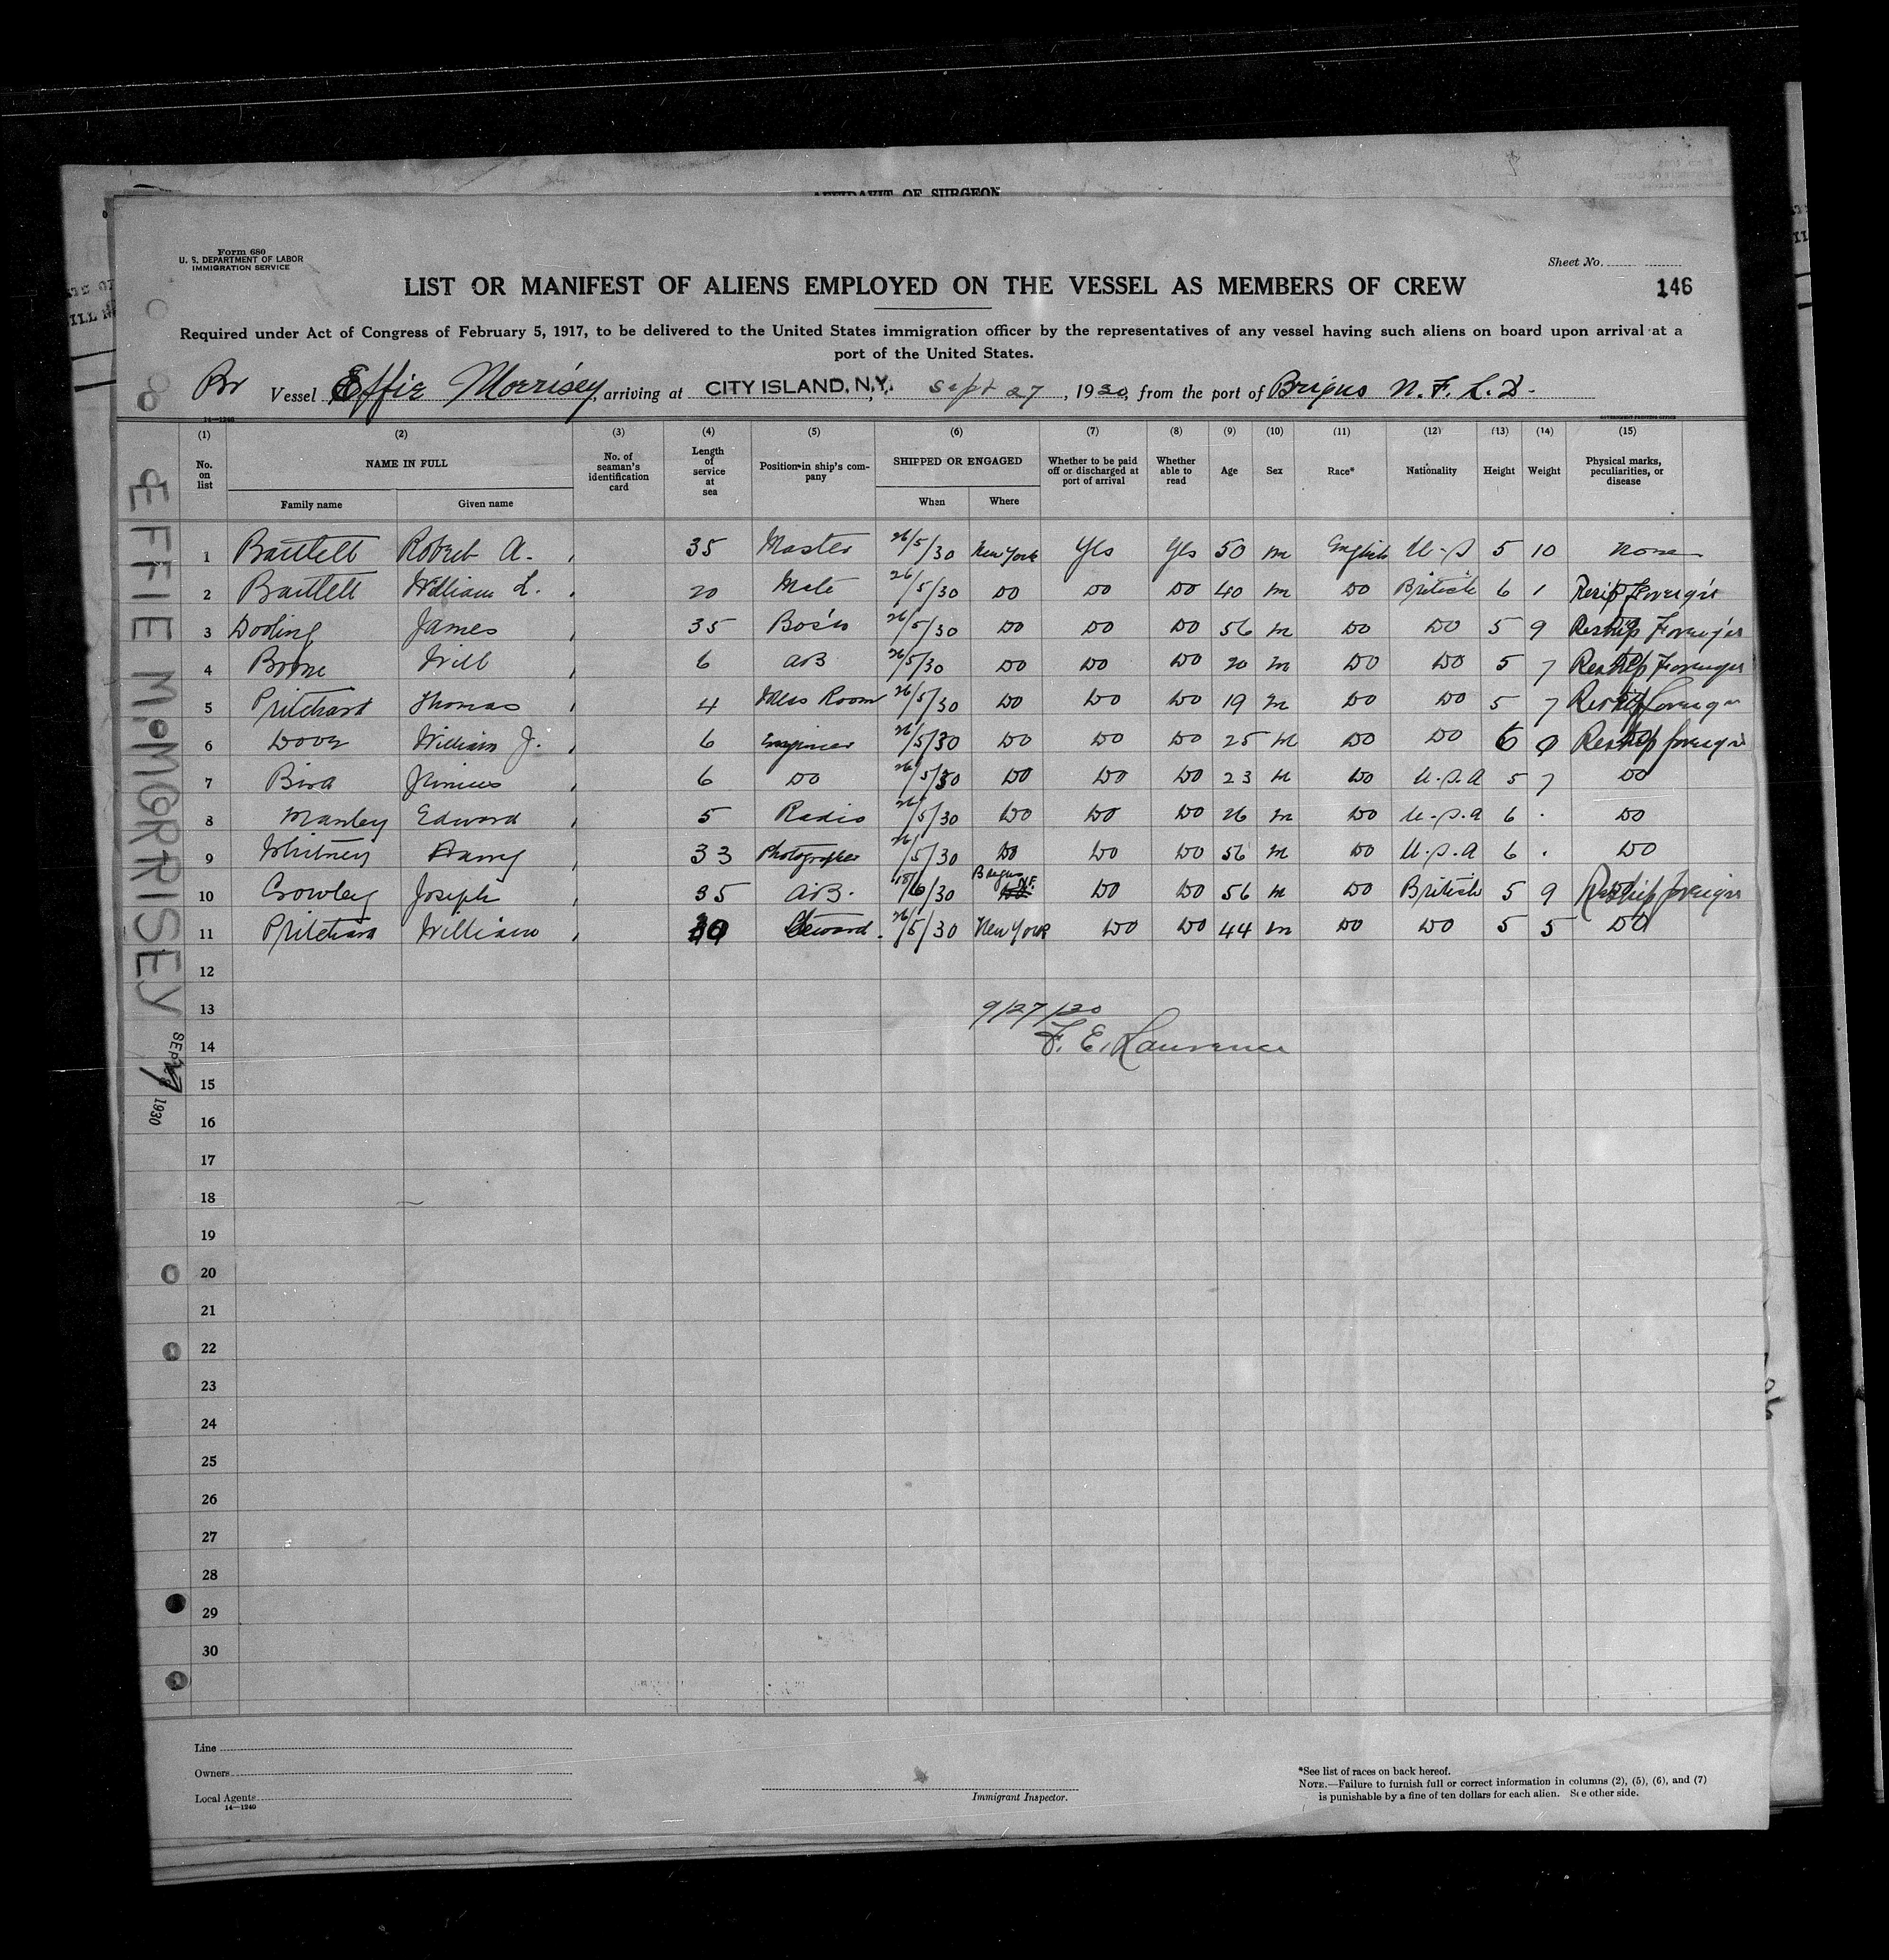 AFFIDAVIT OF SURGEON
Form 680
U. S. DEPARTMENT OF LABOR
IMMIGRATION SERVICE
Sheet No.
LIST OR MANIFEST OF ALIENS EMPLOYED ON THE VESSEL AS MEMBERS OF CREW
146
Required under Act of Congress of February 5, 1917, to be delivered to the United States immigration officer by the representatives of any vessel having such aliens on board upon arrival at a
port of the United States.
Br Vessel Effie Morrisey, arriving at CITY ISLAND, N.Y., Sept 27, 1930, from the port of Brigus N. F. L. D.
14—1240
(1) (2) (3) (4) (5) (6) (7) (8) (9) (10) (11) (12) (13) (14) (15)
No. on list NAME IN FULL No. of seaman's identification card Length of service at sea Position in ship's company SHIPPED OR ENGAGED Whether to be paid off or discharged at port of arrival Whether able to read Age Sex Race* Nationality Height Weight Physical marks, peculiarities, or disease
Family name Given name When Where
1 Bartlett Robert A. 35 Master 26/5/30 New York Yes Yes 50 m English U.S 5 10 None
2 Bartlett William L. 20 Mate 26/5/30 DO DO DO 40 m DO British 6 1
3 Dooling James 35 Bos'n 26/5/30 DO DO DO 56 m DO DO 5 9 Reship Foreign
4 Will 6 AB 26/5/30 DO DO DO 20 m DO DO 5 7 Reship Foreign
5 Pritchard Thomas 4 Mess Room 26/5/30 DO DO DO 19 m DO DO 5 7 Reship foreign
6 Dove William J. 6 Engineer 26/5/30 DO DO DO 25 m DO DO 6 0 Reship foreign
7 Bird Junius 6 DO 26/5/30 DO DO DO 23 m DO U.S.A 5 7 DO
8 Manley Edward 5 Radio 26/5/30 DO DO DO 26 m DO U.S.A 6 . DO
9 Whitney Harry 33 Photographer 26/5/30 DO DO DO 56 m DO U.S.A 6 . DO
10 Crowley Joseph 35 A.B. 18/6/30 Brigus N.F. DO DO 56 m DO British 5 9 Reship foreign
11 Pritchard William Steward 26/5/30 New York DO DO 44 m DO DO 5 5 DO
12
13 9/27/30
14 F. E. Lawrence
15
16
17
18
19
20
21
22
23
24
25
26
27
28
29
30
EFFIE M. MORRISEY
SEP 27 1930
Line
Owners
Local Agents
14—1240
Immigrant Inspector.
*See list of races on back hereof.
NOTE.—Failure to furnish full or correct information in columns (2), (5), (6), and (7)
is punishable by a fine of ten dollars for each alien. See other side.